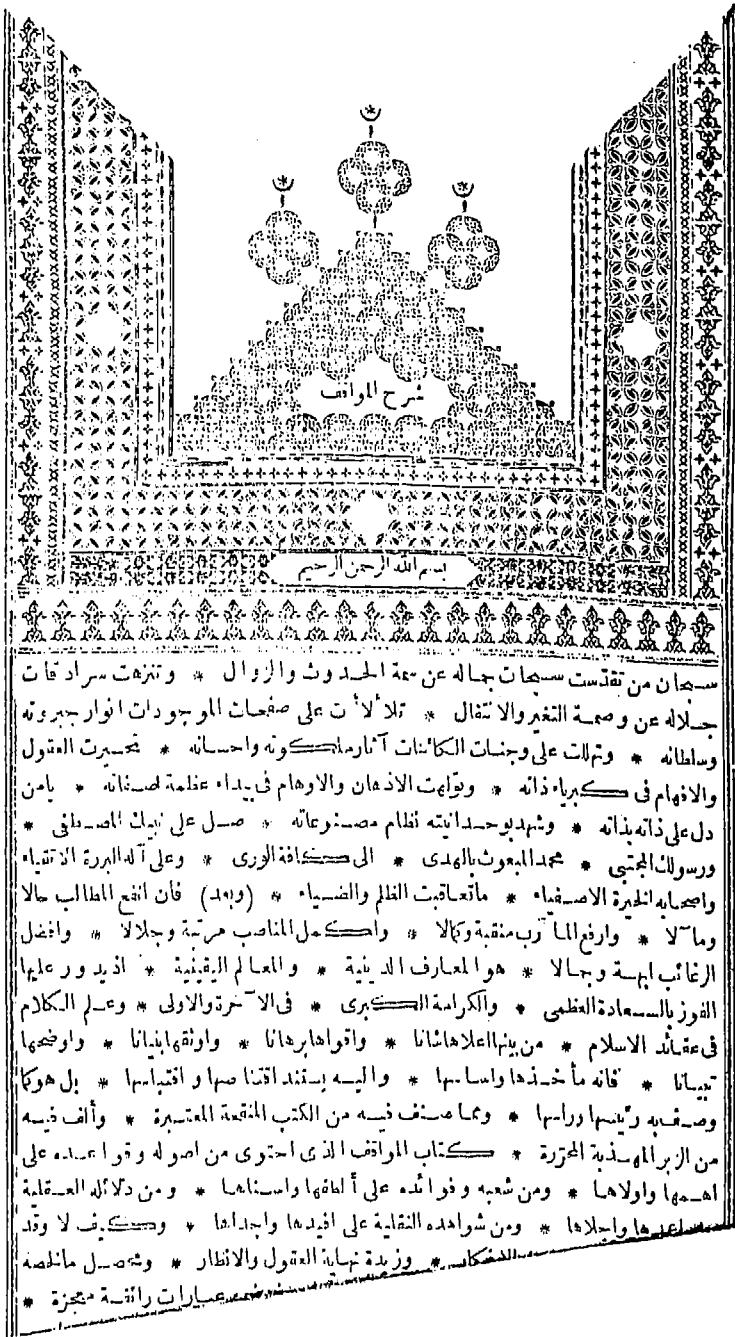 شرح المواقف
بسم الله الرحمن الرحيم
سبحان من تقدّست سبحات جماله عن سمة الحدوث والزوال * وتنزهت سرادقات
جلاله عن وصمة التغير والانتقال * تلألأت على صفحات الموجودات انوار جبروته
وسلطانه * وتهللت على وجنات الكائنات آثار ملكوته واحسانه * تحيرت العقول
والافهام فى كبرياء ذاته * وتولهت الاذهان والاوهام فى بيداء عظمة صفاته * يامن
دل على ذاته بذاته * وشهد بوحدانيته نظام مصنوعاته * صل على نبيك المصطفى *
ورسولك المجتبى * محمد المبعوث بالهدى * الى كافة الورى * وعلى آله البررة الاتقياء
واصحابه الخيرة الاصفياء * ماتعاقبت الظلم والضياء * (وبعد) فان انفع المطالب حالا
ومآلا * وارفع المآرب منقبة وكمالا * واكمل المناصب مرتبة وجلالا * وافضل
الرغائب ابهة وجمالا * هو المعارف الدينية * والمعالم اليقينية * اذيدور عليها
الفوز بالسعادة العظمى * والكرامة الكبرى * فى الآخرة والاولى * وعلم الكلام
فى عقائد الاسلام * من بينها اعلاها شانا * واقواها برهانا * واوثقها بنيانا * واوضحها
تبيانا * فانه مأخذها واساسها * واليه يستند اقتناصها واقتباسها * بل هو كما
وصف به رئيسها وراسها * ومما صنف فيه من الكتب المنقحة المعتبرة * وألف فيه
من الزبر المهذبة المحرّرة * كتاب المواقف الذى احتوى من اصوله وقواعده على
اهمها واولاها * ومن شعبه وفوائده على ألطفها واسناها * ومن دلائله العقلية
واجلاها * ومن شواهده النقلية على افيدها واجداها * وكيف لا وقد
* وزبدة نهاية العقول والانظار * ومحصل مالخصه
عبارات رائقة معجزة *